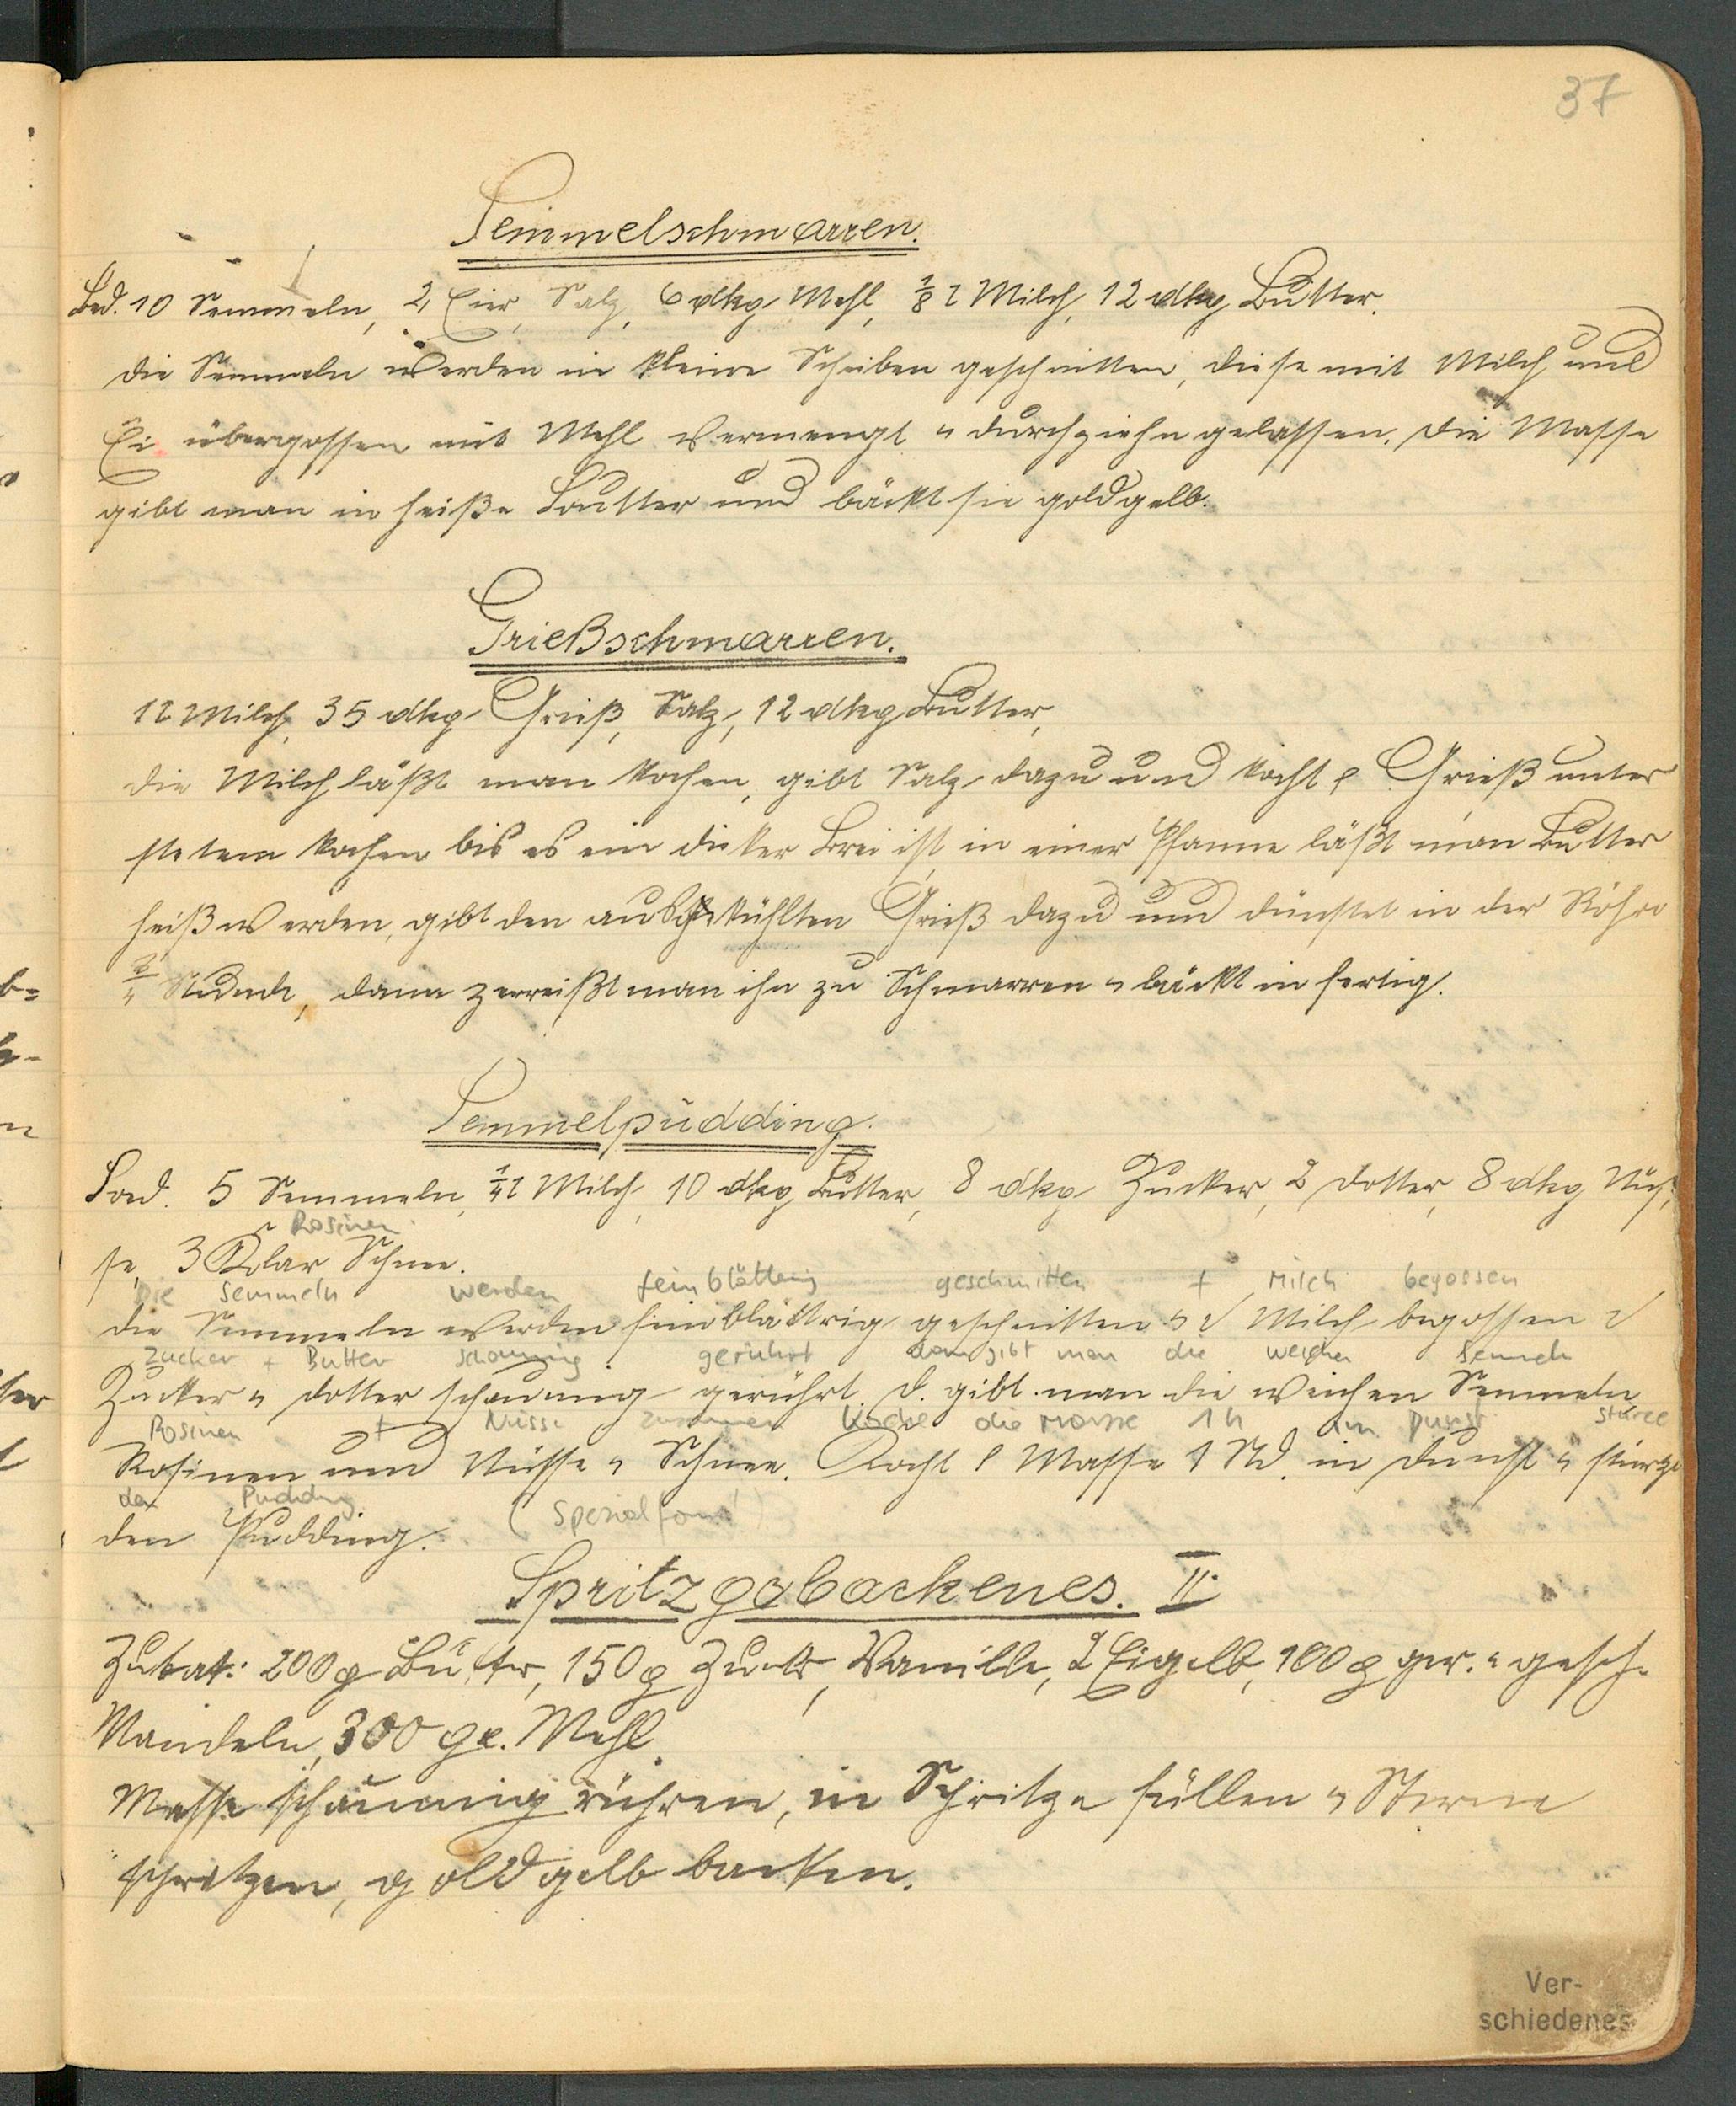 37
Semmelschmarren.
Bed. 10 Semmeln, 2 Eier, Salz, 6 dkg Mehl, 3/8 l Milch, 12 dkg Butter.
die Semmeln werden in kleine Scheiben geschnitten, diese mit Milch und
Ei übergossen mit Mehl vermengt u durchziehn gelassen. die Masse
gibt man in heiße Butter und bäckt sie goldgelb.
Grießschmarren.
1 l Milch, 35 dkg Grieß, Salz, 12 dkg Butter,
die Milch läßt man kochen, gibt Salz dazu und kocht Grieß unter
stetem kochen bis es ein dicker Brei ist, in einer Pfanne läßt man Butter
heiß werden, gibt den ausgekühlten Grieß dazu und dünstet in der Röhre
Stunde, dann zerreißt man ihn zu Schmarren u bäckt in fertig.
Semmelpudding.
Bed. 5 Semmeln, 1/4 l Milch, 10 dkg Butter, 8 dkg Zucker, 2 dotter, 8 dkg Nüs-
Rosinen
se, 3 Klar Schnee.
Die Semmeln werden feinblättrig geschnitten + Milch begossen
die Semmeln werden feinblättrig geschnitten u Milch begossen
Zucker + Butter schaumig gerührt dann gibt man die weichen Semmeln
Zucker u dotter schaumig gerührt. d. gibt man die weichen Semmeln
Rosinen + Nüsse zusammen koche die Masse 1 h im Dunst stürze
Rosinen und Nüsse u Schnee. Kocht Masse 1 Std. in dunst u stürzt
den Pudding
den Pudding. (Spezialform!)
Spritzgebackenes. II.
Zutat: 200 g Butter, 150 g Zucker, Vanille, 2 Eigelb, 100 g ger. u gesch.
Mandeln, 300 gr. Mehl.
Masse schaumig rühren, in Spritze füllen u Sterne
spritzen, goldgelb backen.
Ver-
schiedenes